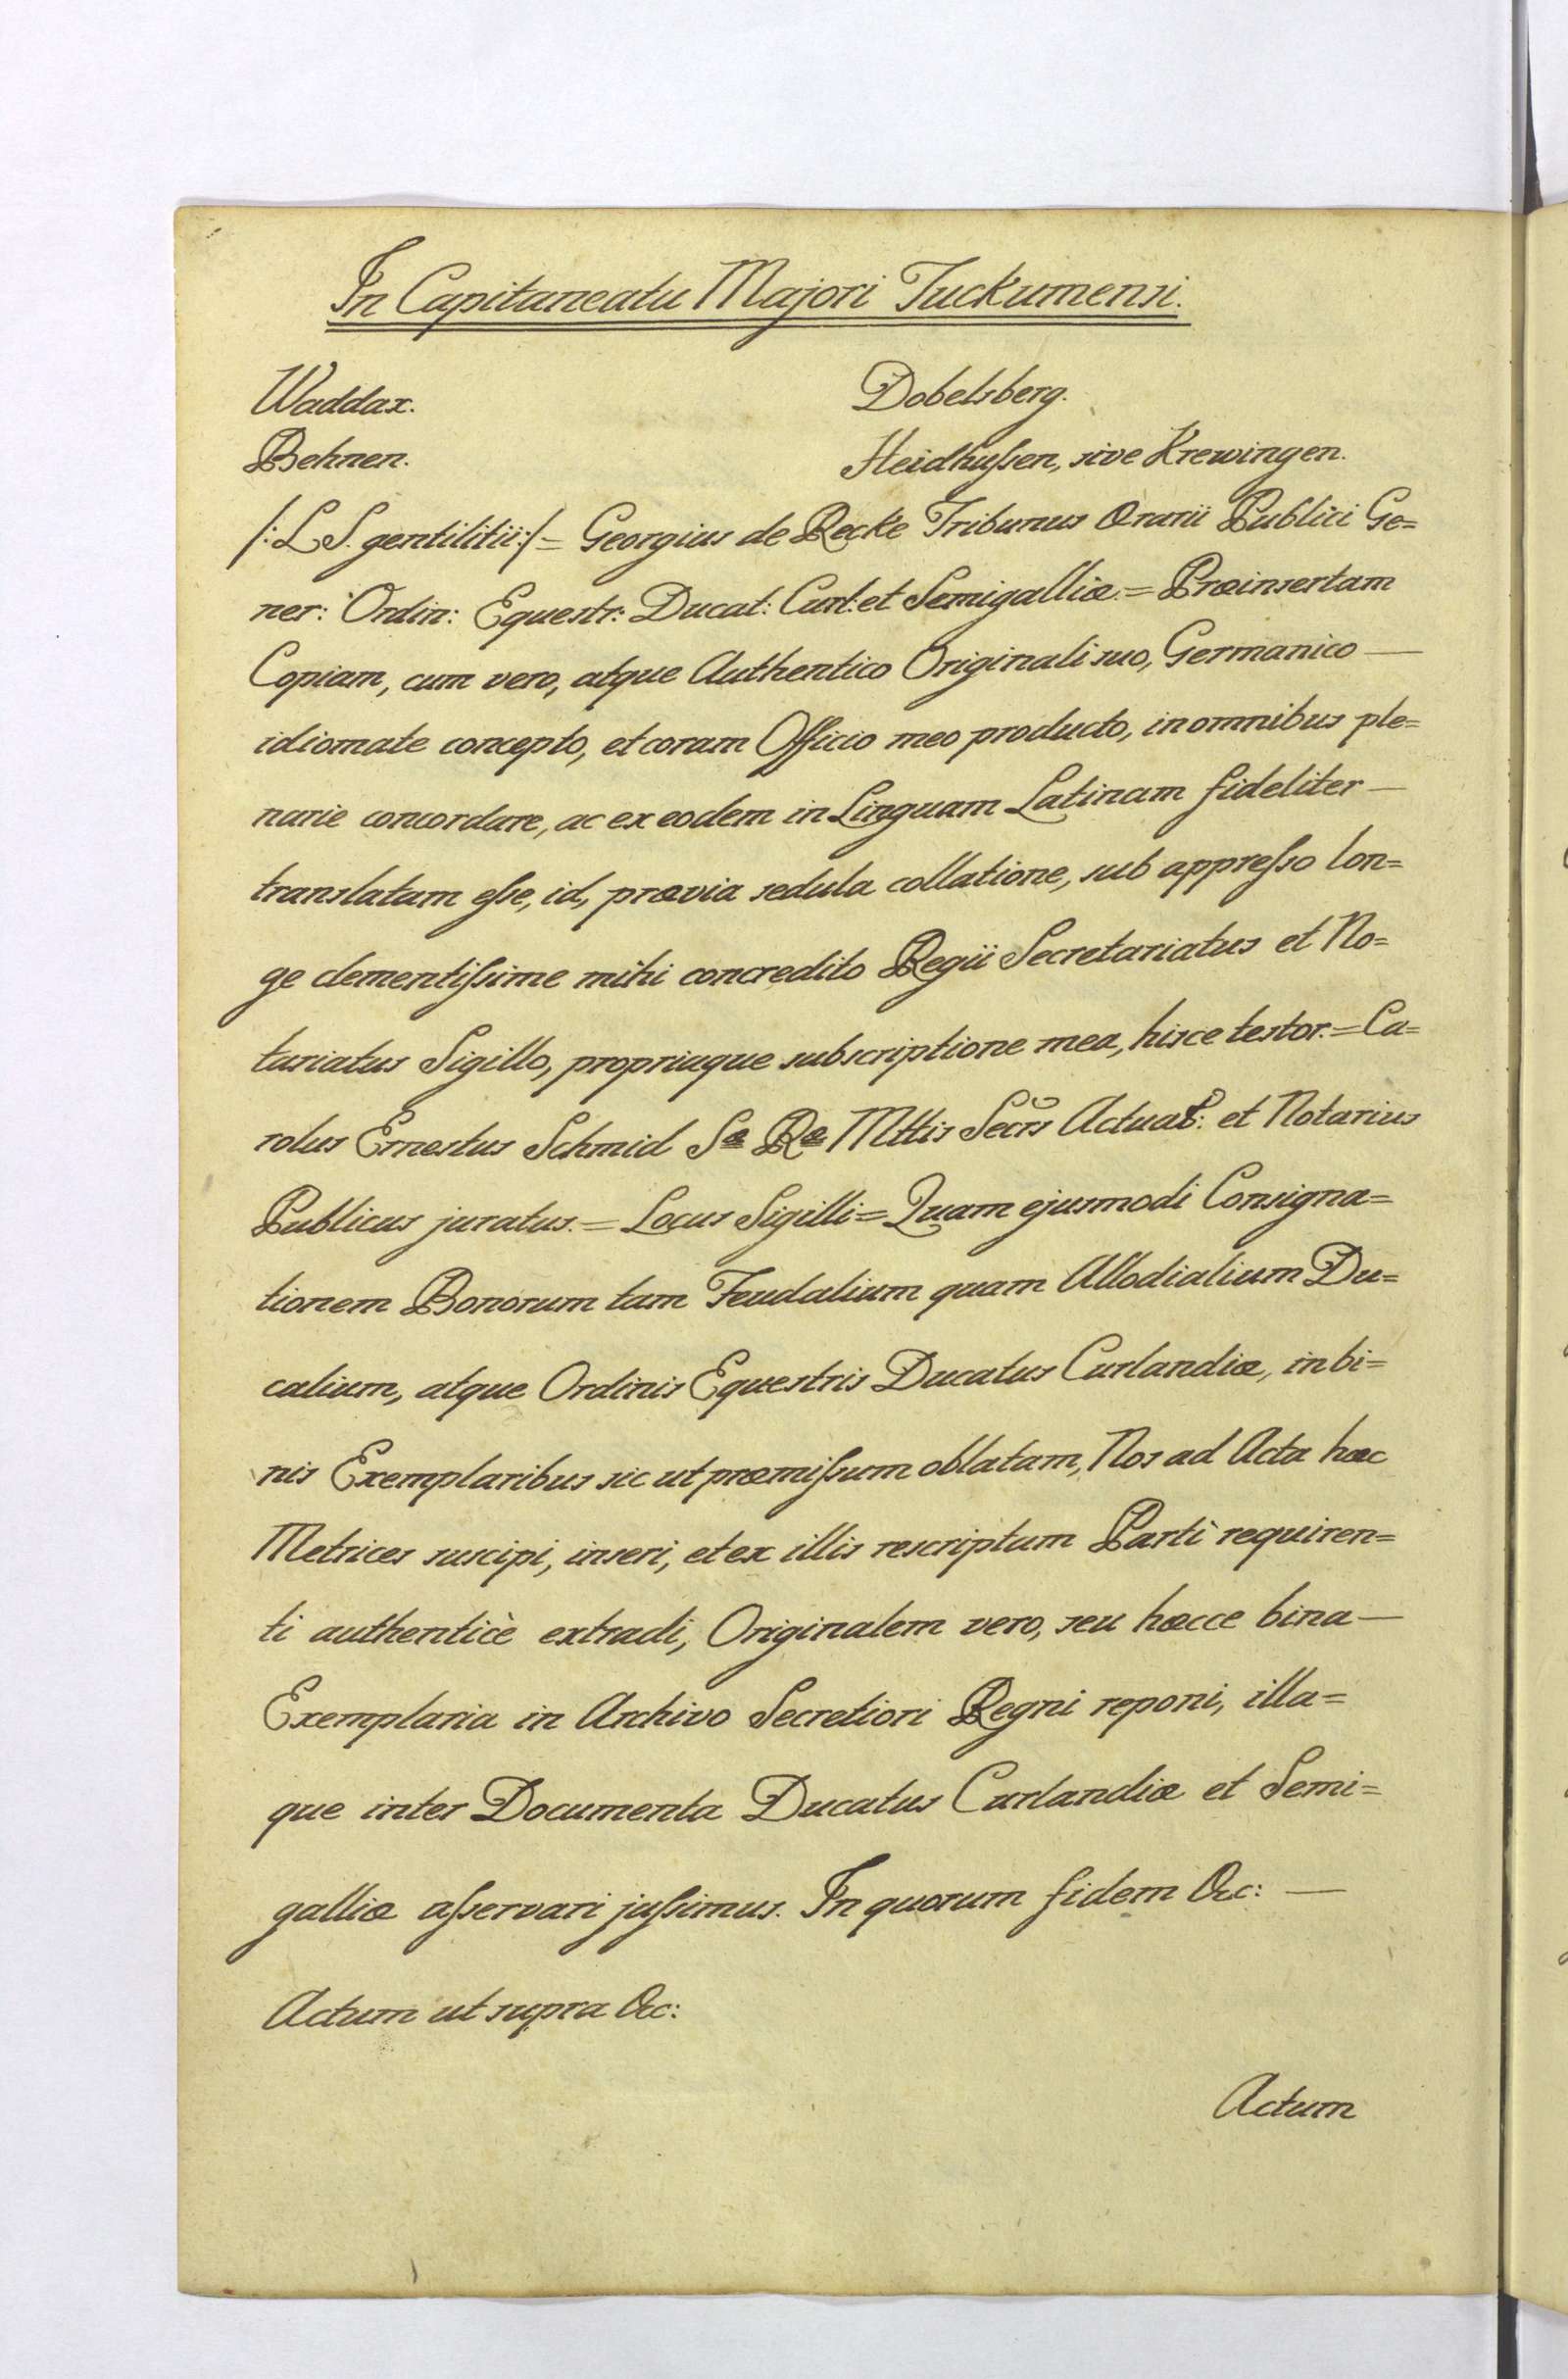 In Capitaneatu Majori Tuckumensi.
Waddax. Dobelsberg.
Behnen. Heidhusſen, sive Krewingen.
/: L S. gentilitii :/ = Georgius de Recke Tribunus Ærarii Publici Ge=
ner: Ordin: Equestr: Ducat: Curl: et Semigalliæ. = Præinsertam
Copiam, cum vero, atque Authentico Originali suo, Germanico —
idiomate concepto, et coram Officio meo producto, in omnibus ple=
narie concordare, ac ex eodem in Linguam Latinam fideliter —
translatam eſse, id, prævia sedula collatione, sub appreſso lon=
ge clementiſsime mihi concredito Regii Secretariatus et No=
tariatus Sigillo, propriaque subscriptione mea, hisce testor. = Ca=
rolus Ernestus Schmid Sæ Ræ Mttis Secrs Actual: et Notarius
Publicus juratus. = Locus Sigilli = Quam ejusmodi Consigna=
tionem Bonorum tam Feudalium quam Allodialium Du=
calium, atque Ordinis Equestris Ducatus Curlandiæ, in bi=
nis Exemplaribus sic ut præmiſsum oblatam, Nos ad Acta hæc
Metrices suscipi, inseri, et ex illis rescriptum Parti requiren=
ti authenticè extradi, Originalem vero, seu hæcce bina —
Exemplaria in Archivo Secretiori Regni reponi, illa=
que inter Documenta Ducatus Curlandiæ et Semi=
galliæ aſservari juſsimus. In quorum fidem &c: —
Actum ut supra &c:
Actum